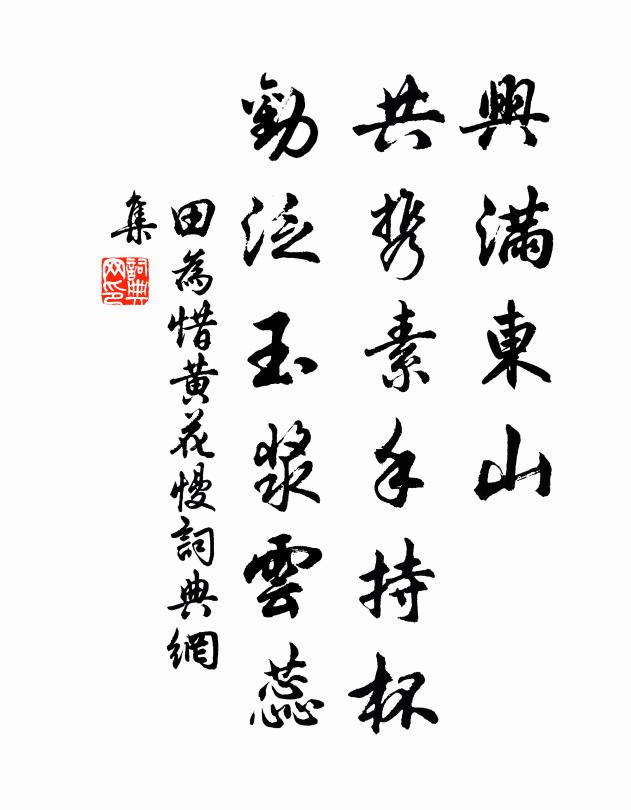 興滿東山
共携素手持杯
勸泛玉漿雲蕊
田為惜黃花慢詞典網
集
詞典網印